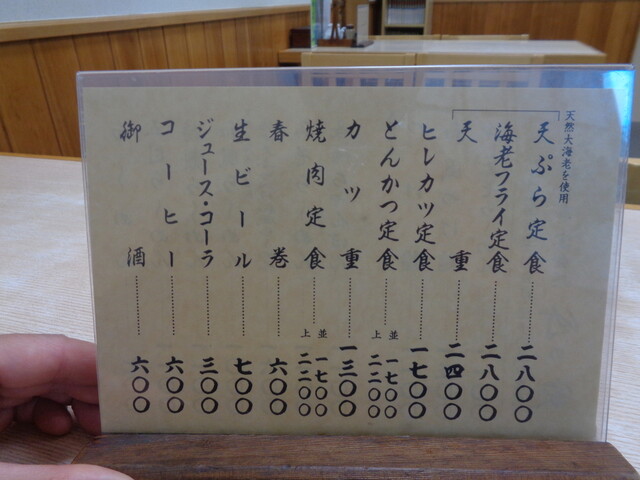 天然大海老を使用
天ぷら定食……二八〇〇
海老フライ定食……二八〇〇
天重……二四〇〇
ヒレカツ定食……一七〇〇
とんかつ定食……並 一七〇〇
上 二二〇〇
カツ重……一三〇〇
焼肉定食……並 一七〇〇
上 二二〇〇
春巻……六〇〇
生ビール……七〇〇
ジュース・コーラ……三〇〇
コーヒー……六〇〇
御酒……六〇〇